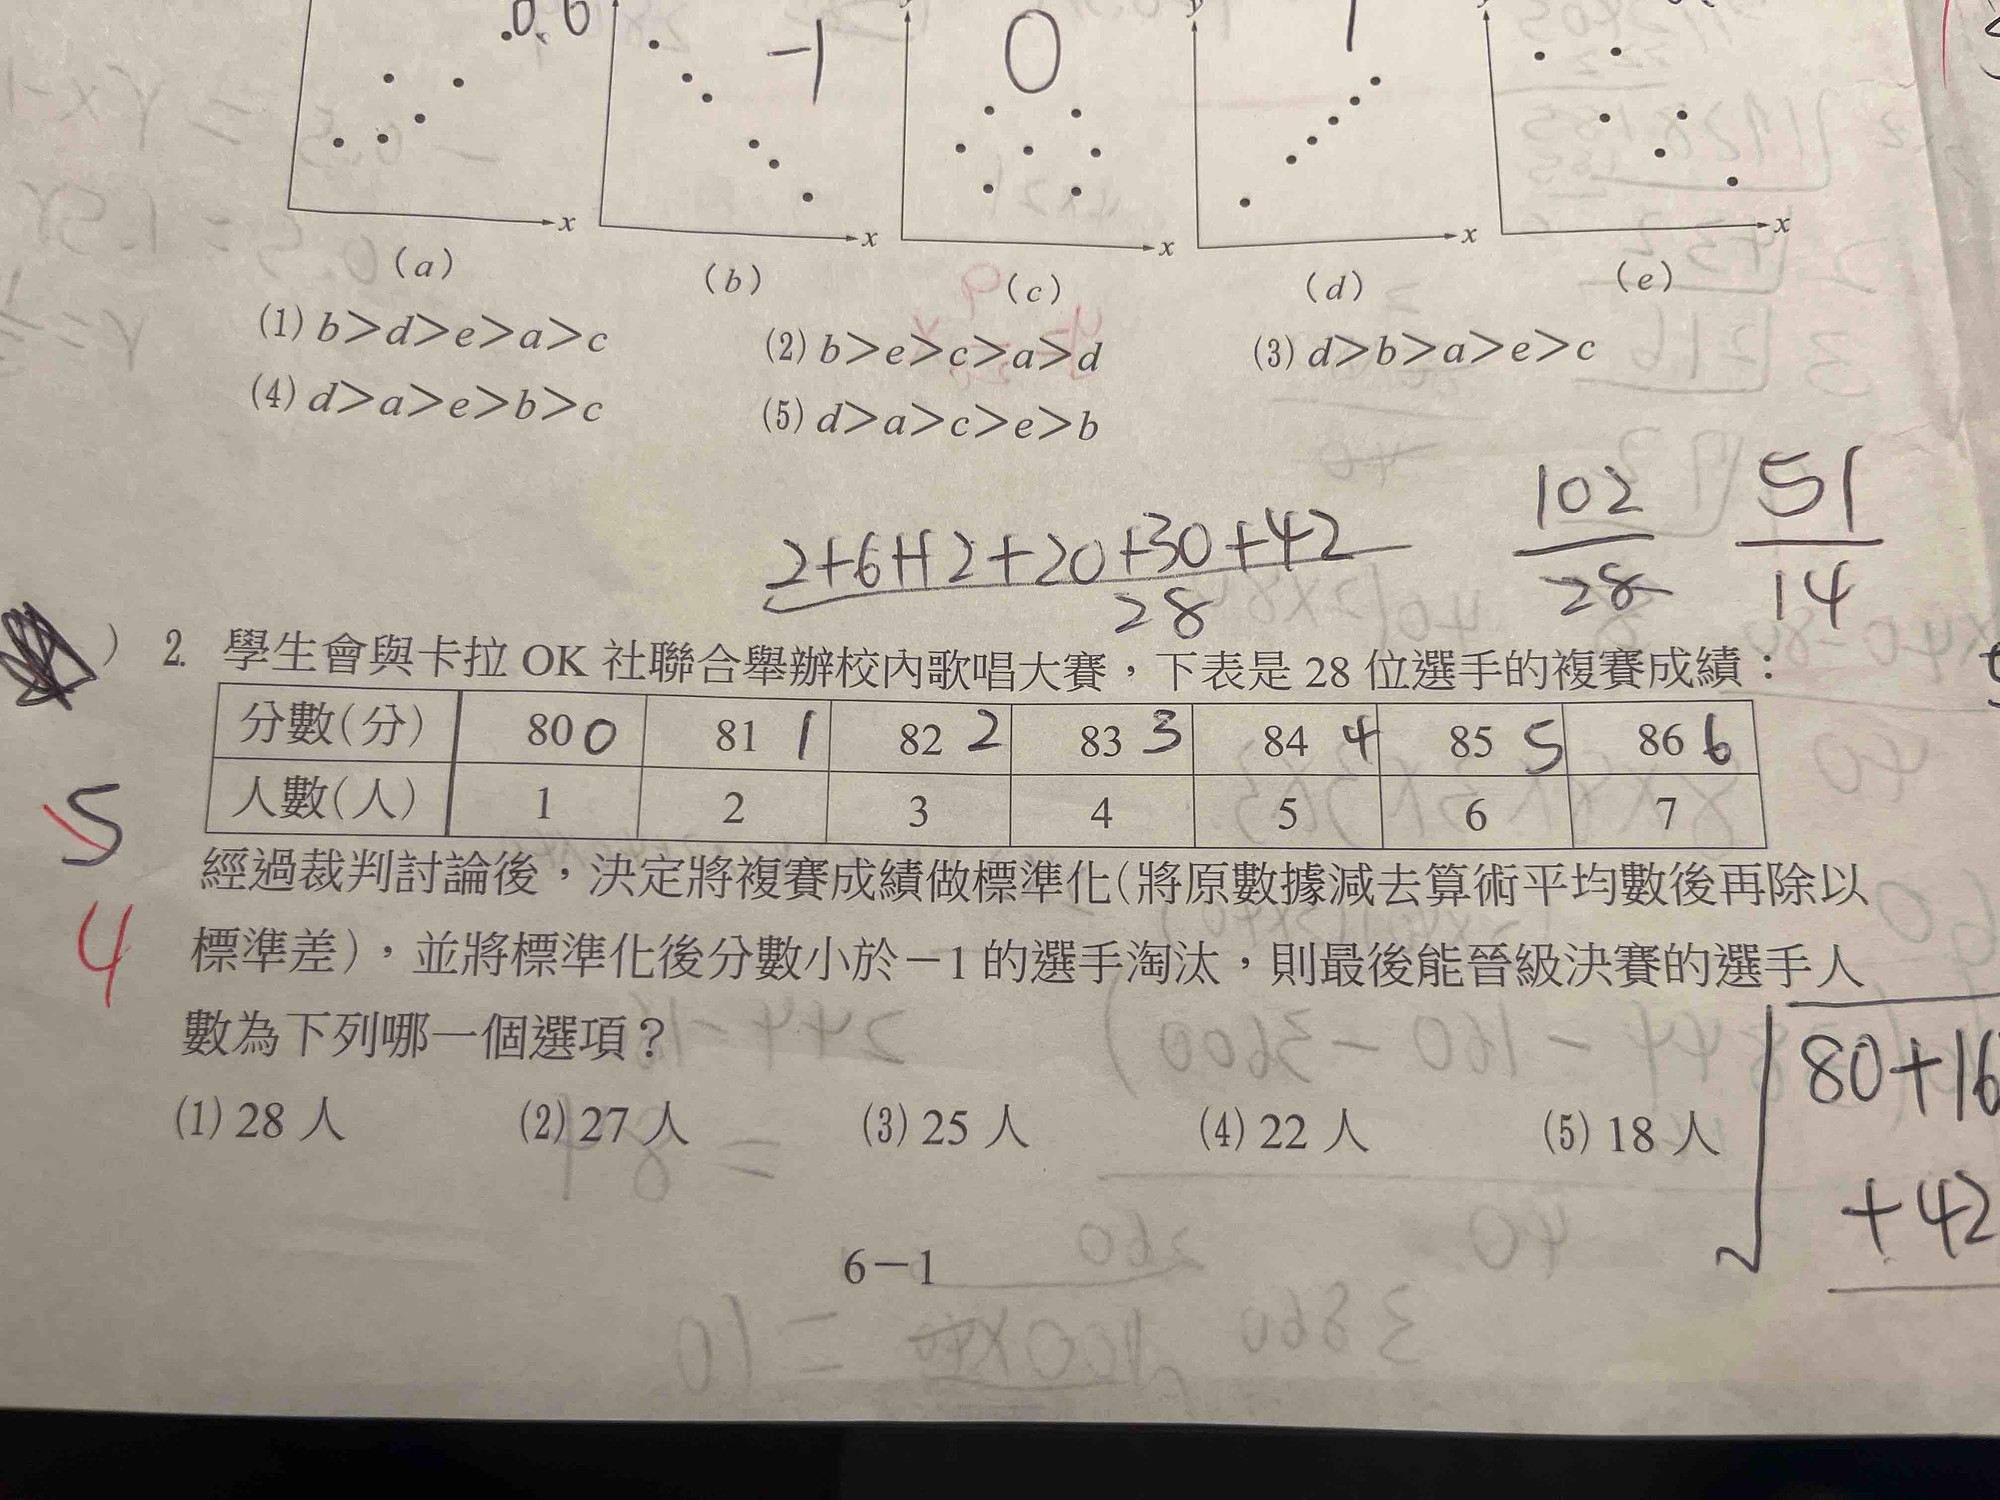 0.6 -1 0 1
x x x x x
(a) (b) (c) (d) (e)
(1) b＞d＞e＞a＞c (2) b＞e＞c＞a＞d (3) d＞b＞a＞e＞c
(4) d＞a＞e＞b＞c (5) d＞a＞c＞e＞b
102 51
2+6+12+20+30+42
28 28 14
) 2. 學生會與卡拉 OK 社聯合舉辦校內歌唱大賽，下表是 28 位選手的複賽成績：
分數(分) 80 0 81 1 82 2 83 3 84 4 85 5 86 6
人數(人) 1 2 3 4 5 6 7
5
經過裁判討論後，決定將複賽成績做標準化(將原數據減去算術平均數後再除以
4
標準差)，並將標準化後分數小於－1 的選手淘汰，則最後能晉級決賽的選手人
數為下列哪一個選項？
80+16
(1) 28 人 (2) 27 人 (3) 25 人 (4) 22 人 (5) 18 人
+42
6－1